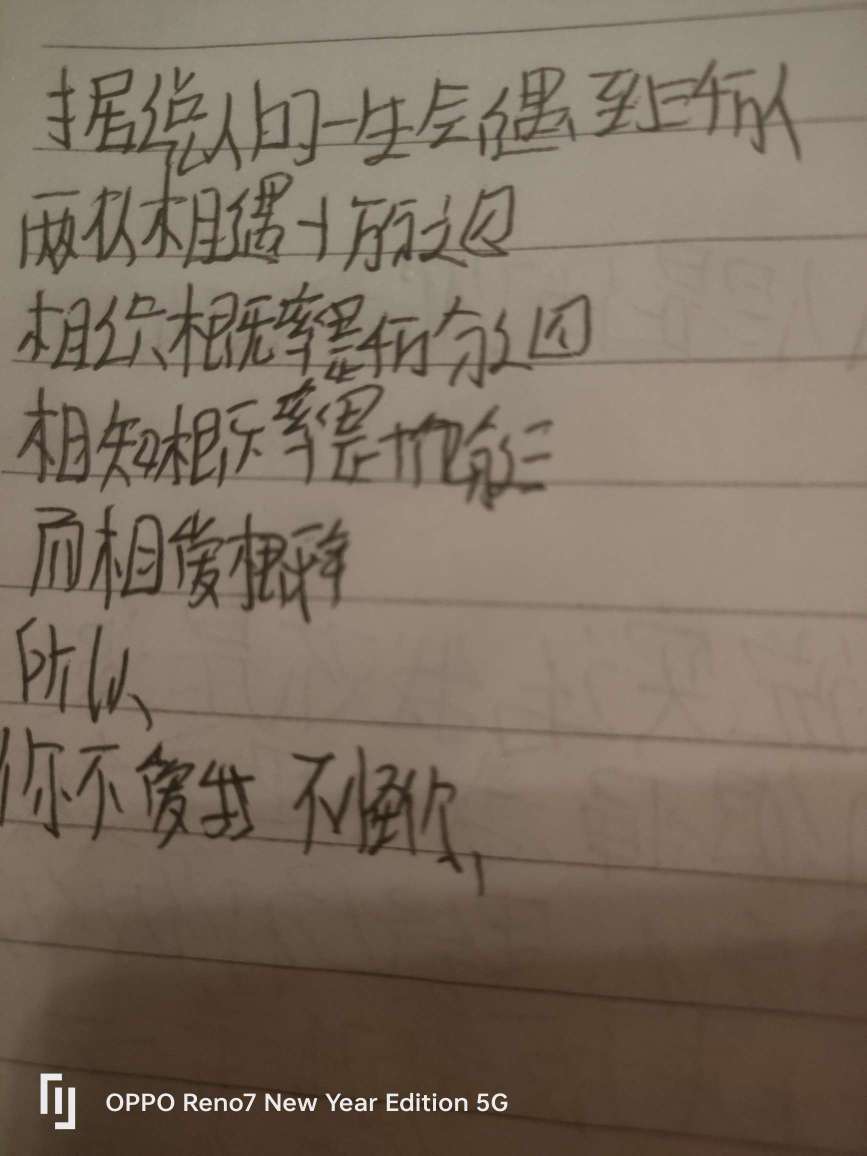 据说人的一生会遇到上千万人
两人相遇十万分之四
相识概率是千万分之四
相知概率是十亿分之三
而相爱概率
所以、
你不爱我 不怪你、
OPPO Reno7 New Year Edition 5G